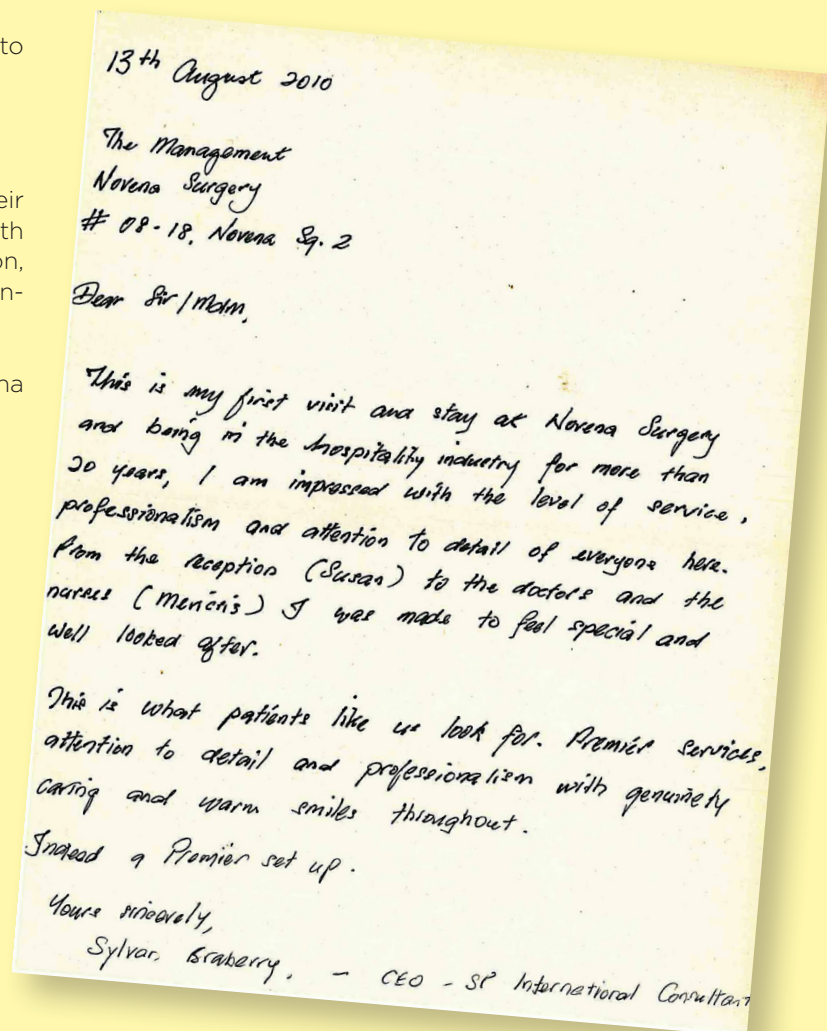 to
eir
th
on,
n-
na
13th August 2010
The Management
Novena Surgery
# 08-18, Novena Sq. 2
Dear Sir/Mdm,
This is my first visit and stay at Novena Surgery
and being in the hospitality industry for more than
20 years, I am impressed with the level of service,
professionalism and attention to detail of everyone here.
From the reception (Susan) to the doctors and the
nurses ( ) I was made to feel special and
well looked after.
This is what patients like us look for. Premier services,
attention to detail and professionalism with genuinely
caring and warm smiles throughout.
Indeed a Premier set up.
Yours sincerely,
Sylvan Braberry. - CEO - SP International Consultant